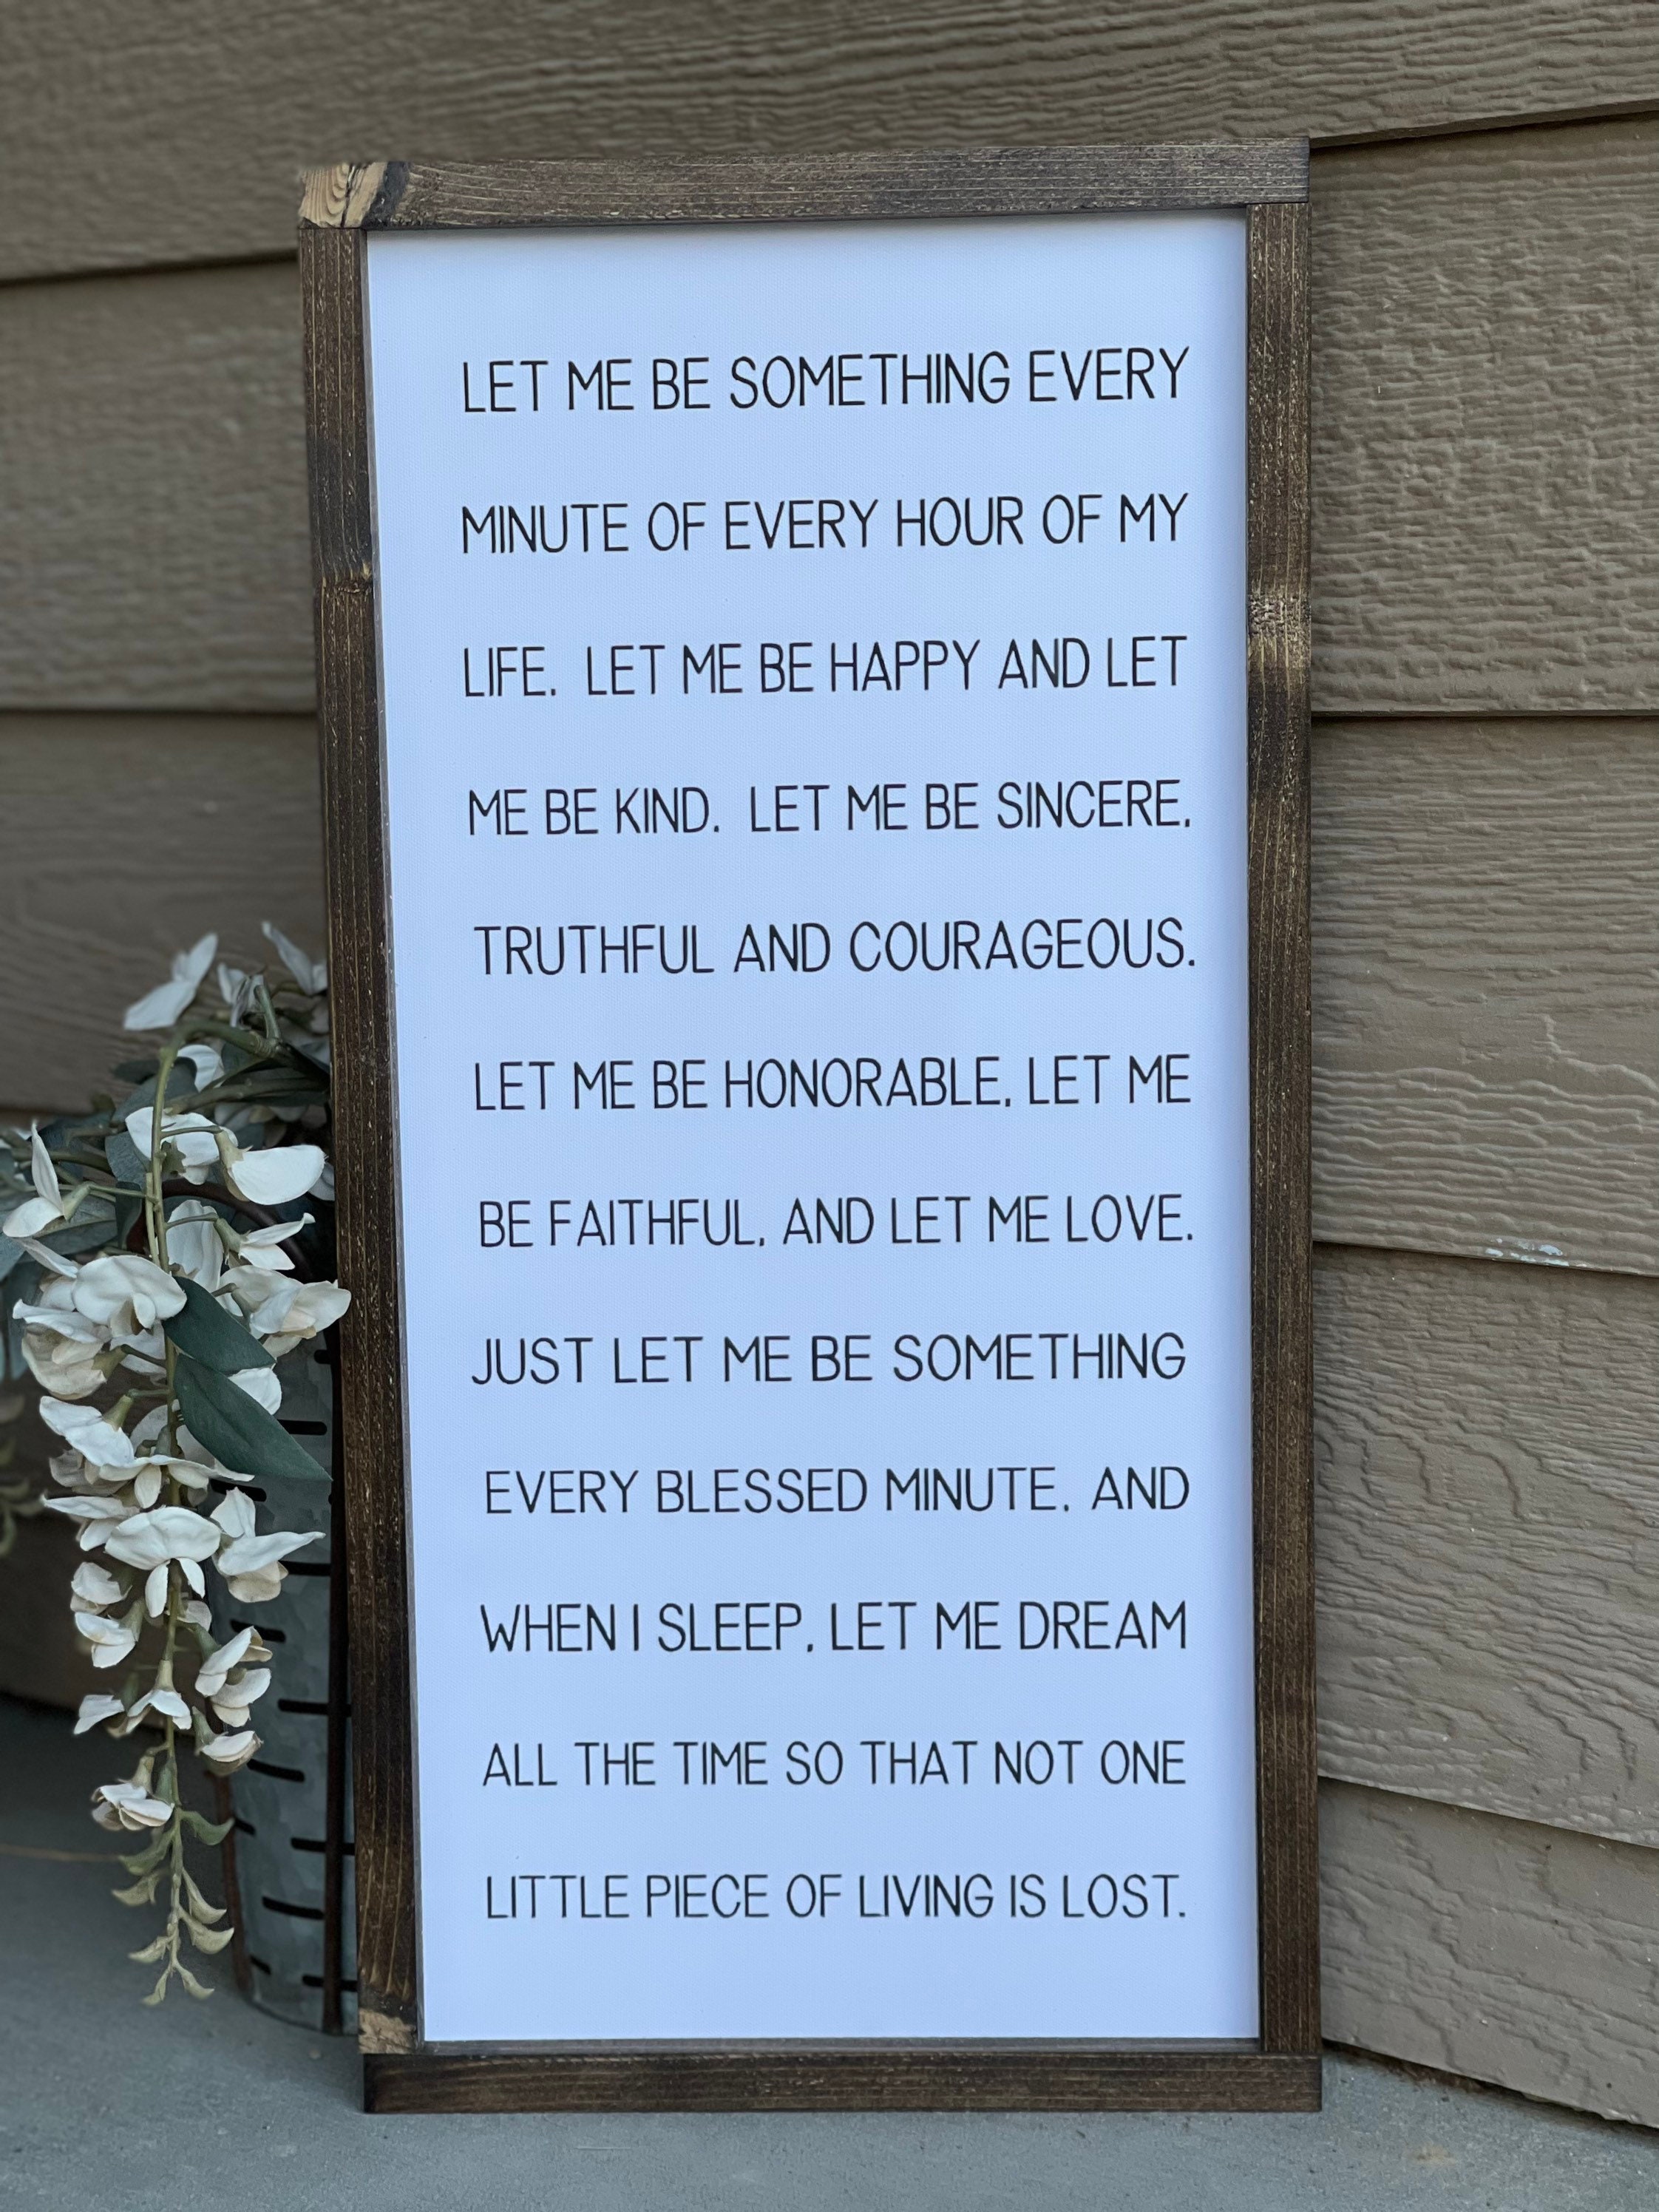 LET ME BE SOMETHING EVERY
MINUTE OF EVERY HOUR OF MY
LIFE. LET ME BE HAPPY AND LET
ME BE KIND. LET ME BE SINCERE,
TRUTHFUL AND COURAGEOUS.
LET ME BE HONORABLE, LET ME
BE FAITHFUL, AND LET ME LOVE.
JUST LET ME BE SOMETHING
EVERY BLESSED MINUTE. AND
WHEN I SLEEP, LET ME DREAM
ALL THE TIME SO THAT NOT ONE
LITTLE PIECE OF LIVING IS LOST.